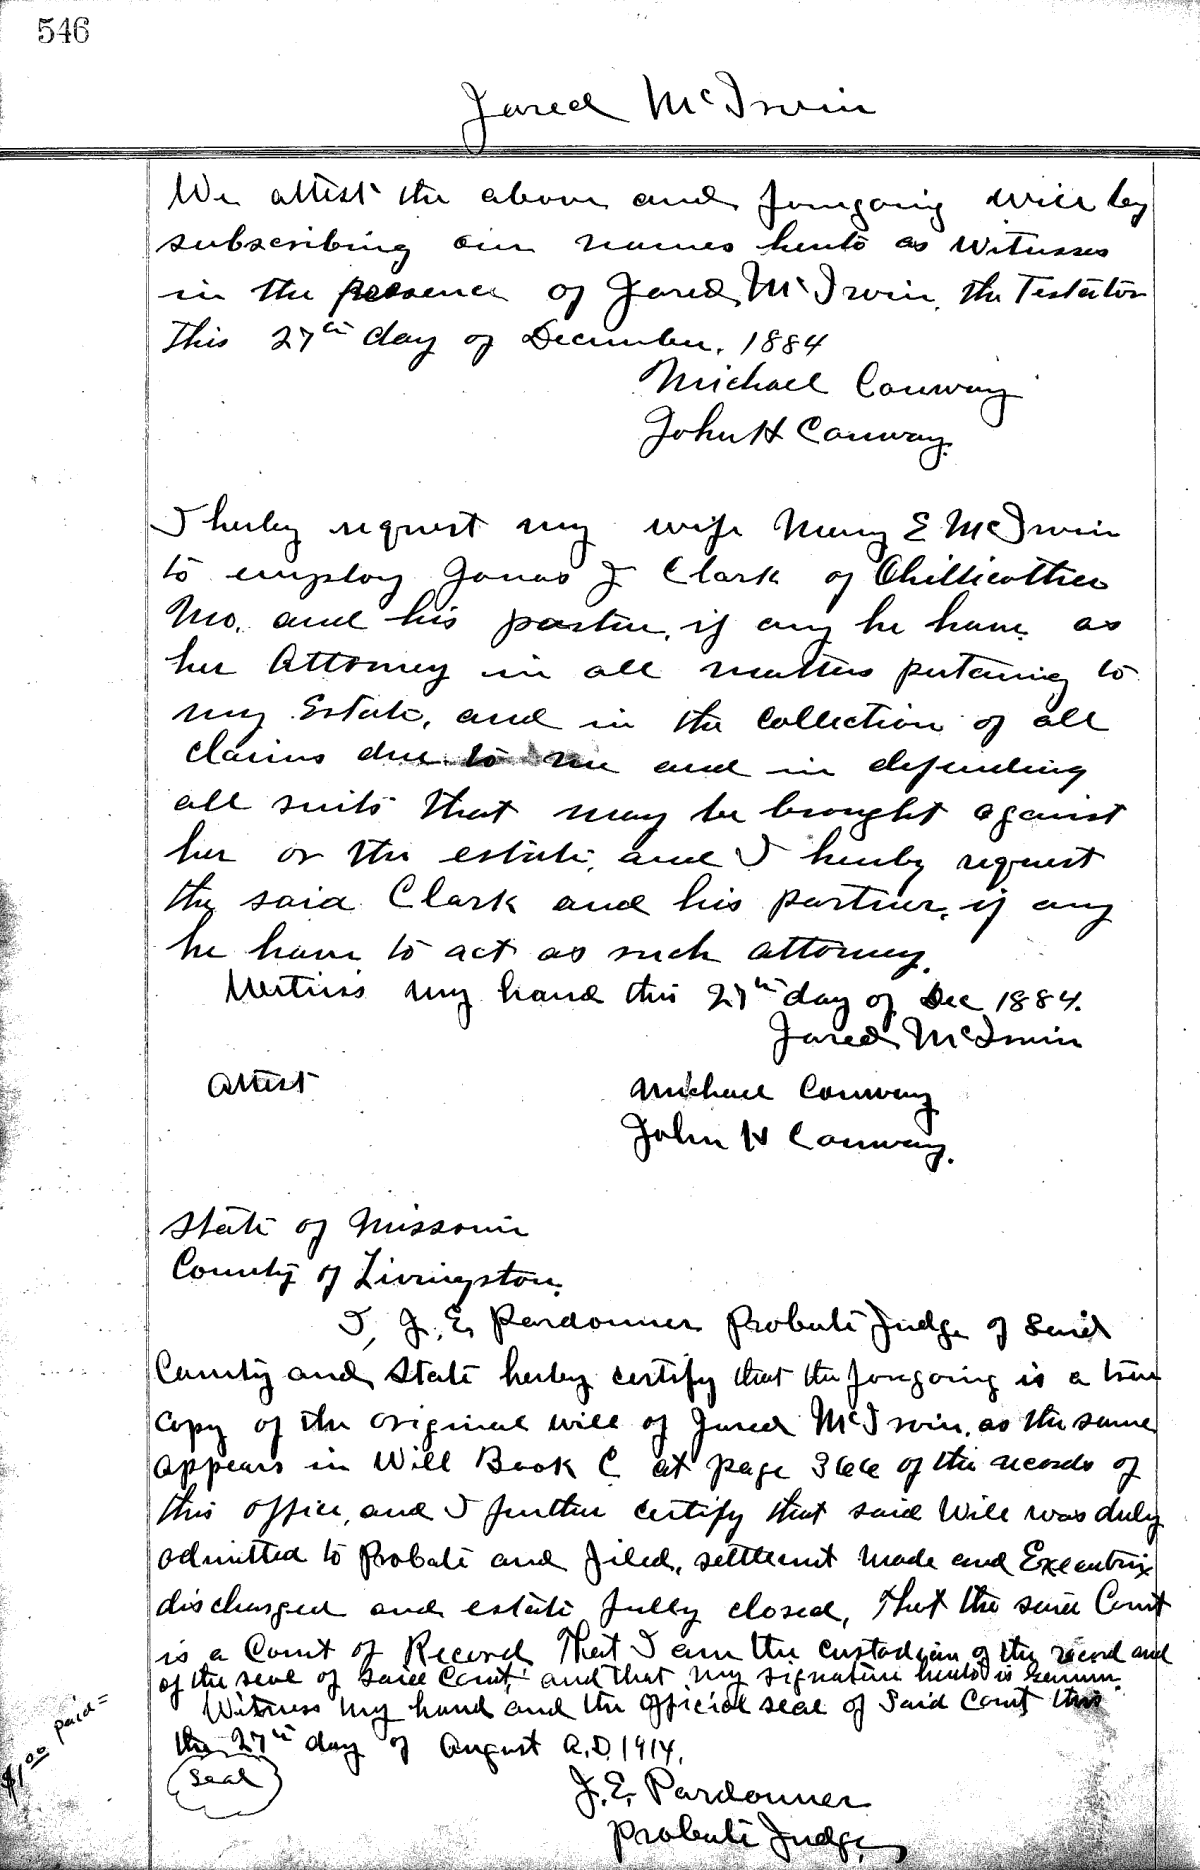 546
Jared McIrwin
We attest the above and foregoing will by
subscribing our names hereto as Witnesses
in the presence of Jared McIrwin, the Testator
This 27th day of December, 1884
Michael Conway
John H Conway.
I hereby request my wife Mary E McIrwin
to employ Jonas J Clark of Chillicothee
Mo. and his partner, if any he have as
her Attorney in all matters pertaining to
my Estate, and in the collection of all
claims due to me and in defending
all suits that may be brought against
her or the estate, and I hereby request
the said Clark and his partner, if any
he have to act as such attorney.
Witness my hand this 27th day of Dec 1884.
Jared McIrwin
Attest
Michael Conway
John H Conway.
State of Missouri
County of Livingston.
I, J. E. Pardonner Probate Judge of Said
County and State hereby certify that the foregoing is a true
copy of the original will of Jared McIrwin, as the same
appears in Will Book C at page 366 of the records of
this office, and I further certify that said Will was duly
admitted to Probate and filed, settlement made and Executrix
discharged and estate fully closed, That the said Court
is a Court of Record That I am the custodian of the record and
of the seal of said Court, and that my signature hereto is genuine.
Witness my hand and the official seal of Said Court this
the 27th day of August A.D. 1914.
$1.00 paid=
Seal
J. E. Pardonner
Probate Judge